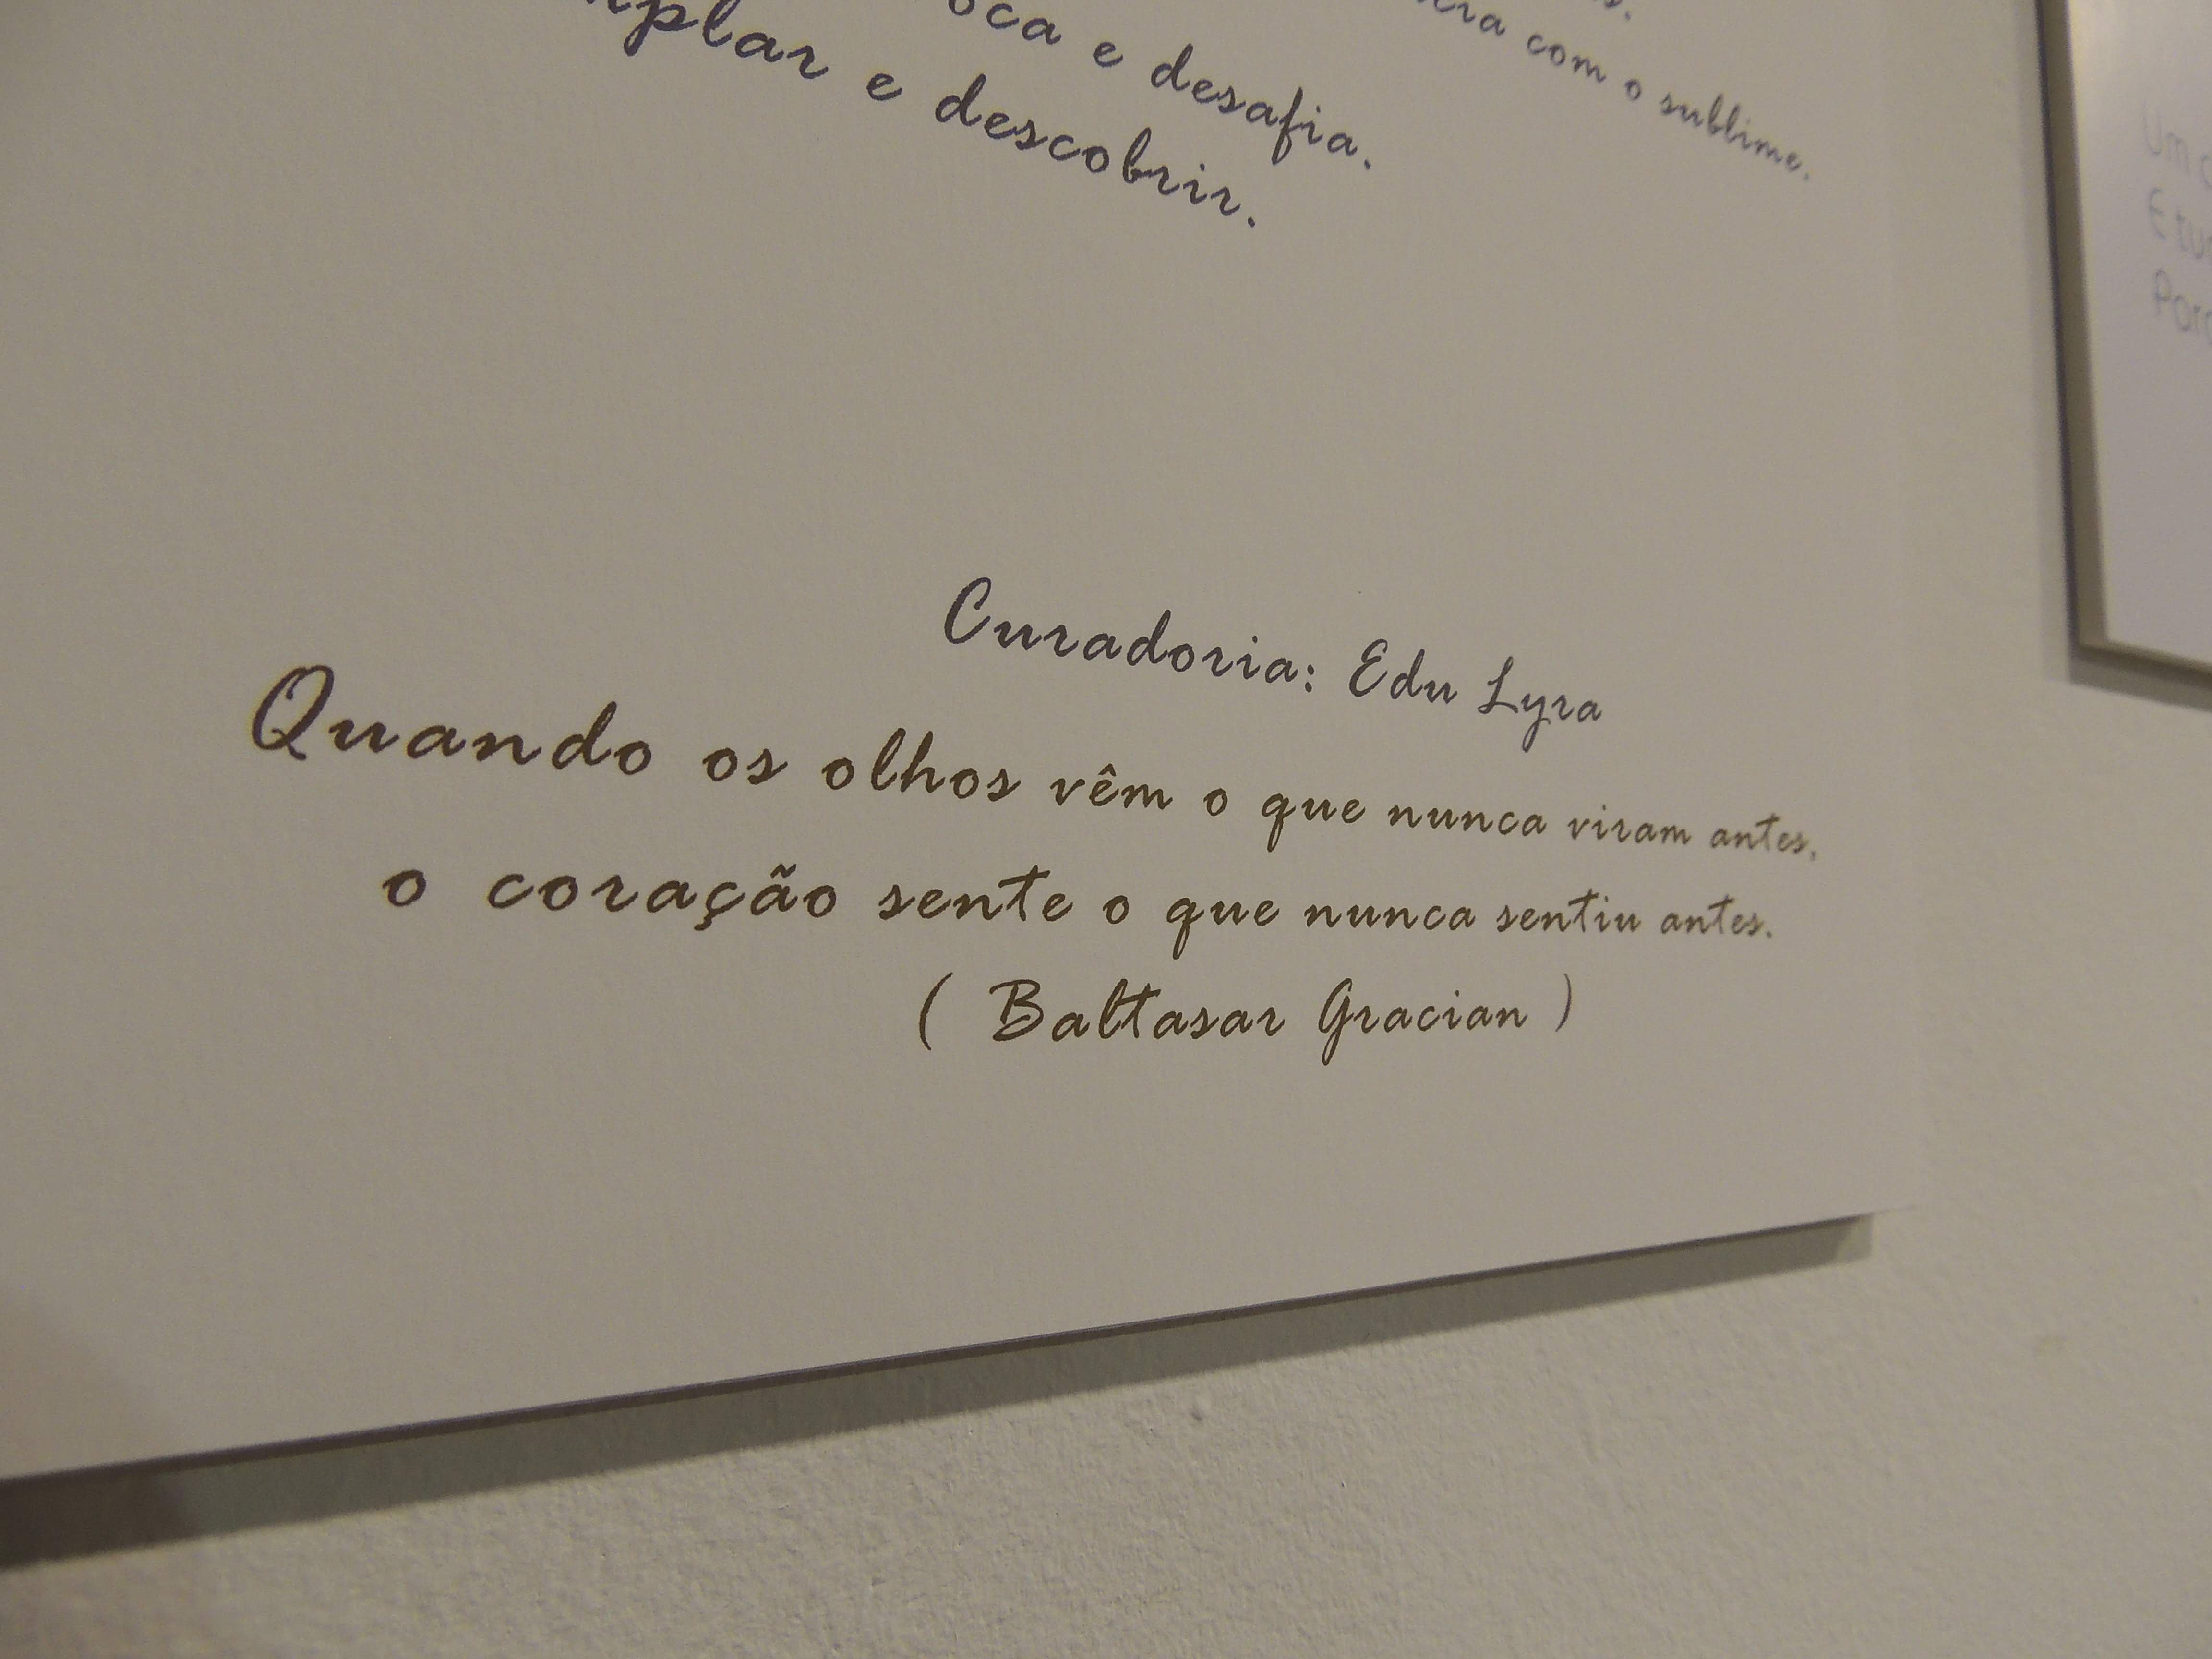 com o sublime.
e desafia.
e descobrir.
Curadoria: Edu Lyra
Quando os olhos vêm o que nunca viram antes,
o coração sente o que nunca sentiu antes.
( Baltasar Gracian )
Um
E